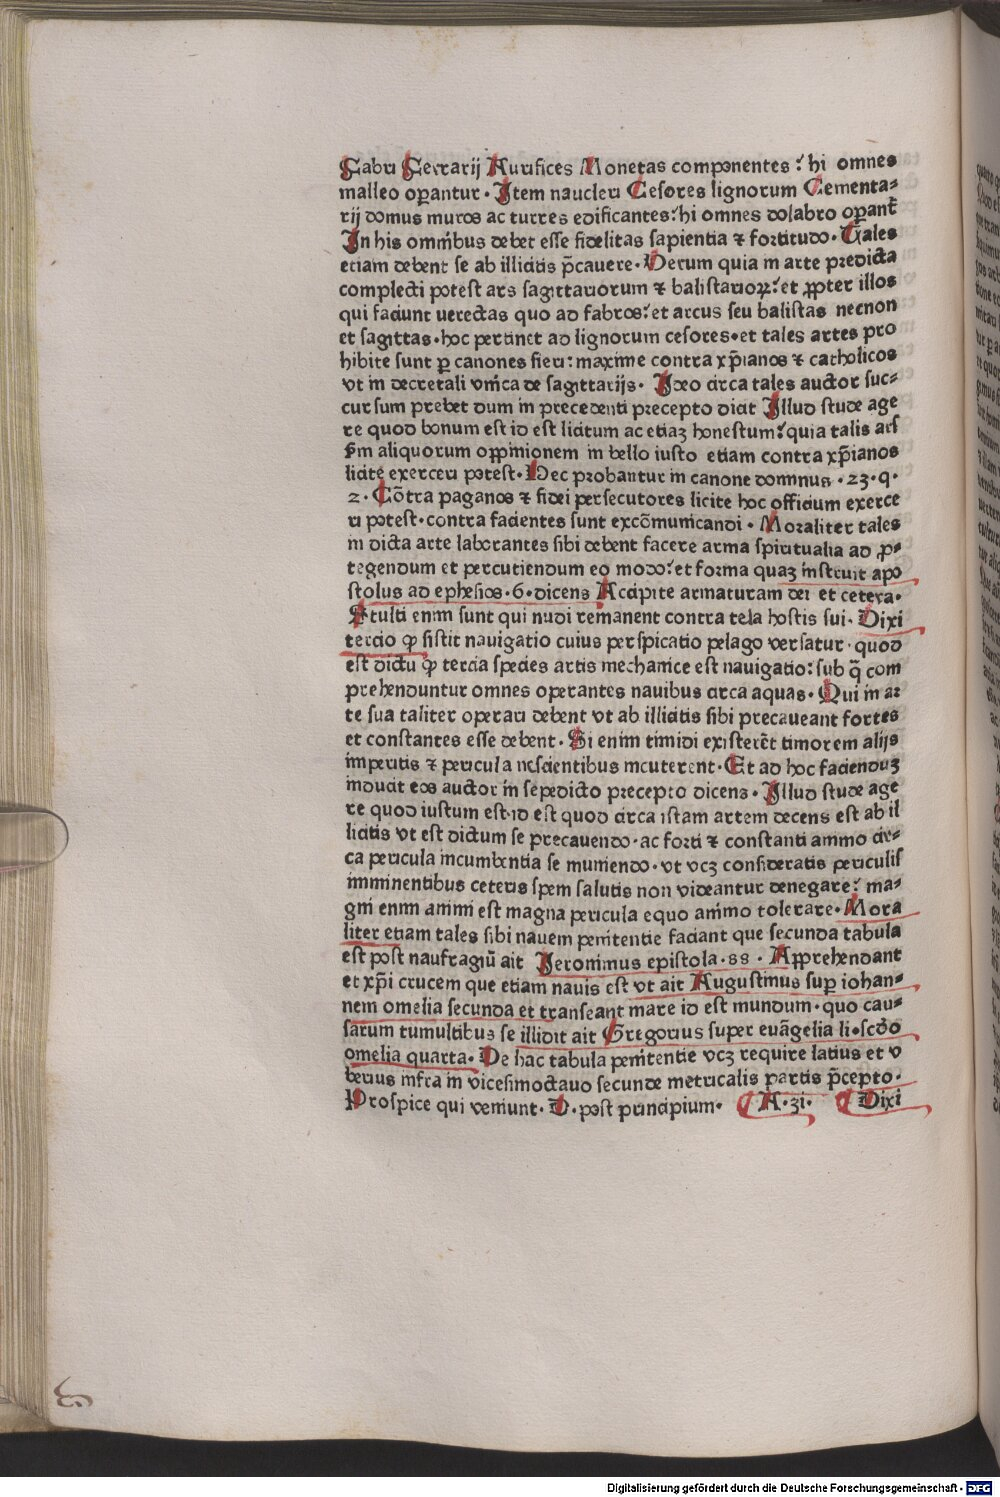 Fabri Ferrarij Aurifices Monetas componentes: hi omnes
malleo oꝑantur. Item naucleri Cesores lignorum Cementa-
rij domus muros ac turres edificantes: hi omnes dolabro oꝑant̃
In his omnibus debet esse fidelitas sapientia ⁊ fortitudo. Tales
etiam debent se ab illicitis p̃cauere. Verum quia in arte predicta
complecti potest ars sagittariorum ⁊ balistarioꝝ: et ꝓpter illos
qui faciunt uerectas quo ad fabros: et arcus seu balistas necnon
et sagittas. hoc pertinet ad lignorum cesores. et tales artes pro
hibite sunt ꝑ canones fieri: maxime contra xp̃ianos ⁊ catholicos
vt in decretali vnica de sagittarijs. Ideo circa tales auctor suc-
cursum prebet dum in precedenti precepto dicit Illud stude age
re quod bonum est id est licitum ac etiaꝫ honestum: quia talis ars
s̃m aliquorum oppinionem in bello iusto etiam contra xp̃ianos
licite exerceri potest. Hec probantur in canone dominus .23.q.
2. Cõtra paganos ⁊ fidei persecutores licite hoc officium exerce
ri potest. contra facientes sunt excõmunicandi. Moraliter tales
in dicta arte laborantes sibi debent facere arma spiritualia ad ꝓ-
tegendum et percutiendum eo modo: et forma quaꝫ instruit apo
stolus ad ephesios.6.dicens Accipite armaturam dei et cetera.
Stulti enim sunt qui nudi remanent contra tela hostis sui. Dixi
tercio ꝙ sistit nauigatio cuius perspicatio pelago versatur. quod
est dictu ꝙ tercia species artis mechanice est nauigatio: sub q̃ com
prehenduntur omnes operantes nauibus circa aquas. Qui in ar
te sua taliter operari debent vt ab illicitis sibi precaueant fortes
et constantes esse debent. Si enim timidi existerẽt timorem alijs
imperitis ⁊ pericula nescientibus incuterent. Et ad hoc facienduꝫ
inducit eos auctor in sepedicto precepto dicens. Illud stude age
re quod iustum est.id est quod circa istam artem decens est ab il
licitis vt est dictum se precauendo. ac forti ⁊ constanti animo cir-
ca pericula incumbentia se muniendo. vt vcꝫ consideratis periculis
imminentibus ceteris spem salutis non videantur denegare: ma-
gni enim animi est magna pericula equo animo tolerare. Mora
liter etiam tales sibi nauem penitentie faciant que secunda tabula
est post naufragiũ ait Jeronimus epistola.88. Apprehendant
et xp̃i crucem que etiam nauis est vt ait Augustinus suꝑ iohan-
nem omelia secunda et transeant mare id est mundum. quo cau-
sarum tumultibus se illidit ait Gregorius super euãgelia li.scd̃o
omelia quarta. De hac tabula penitentie vcꝫ require latius et v
berius infra in vicesimoctauo secunde metricalis partis p̃cepto.
Prospice qui veniunt. D. post principium. A.3i. Dixi
Digitalisierung gefördert durch die Deutsche Forschungsgemeinschaft - DFG